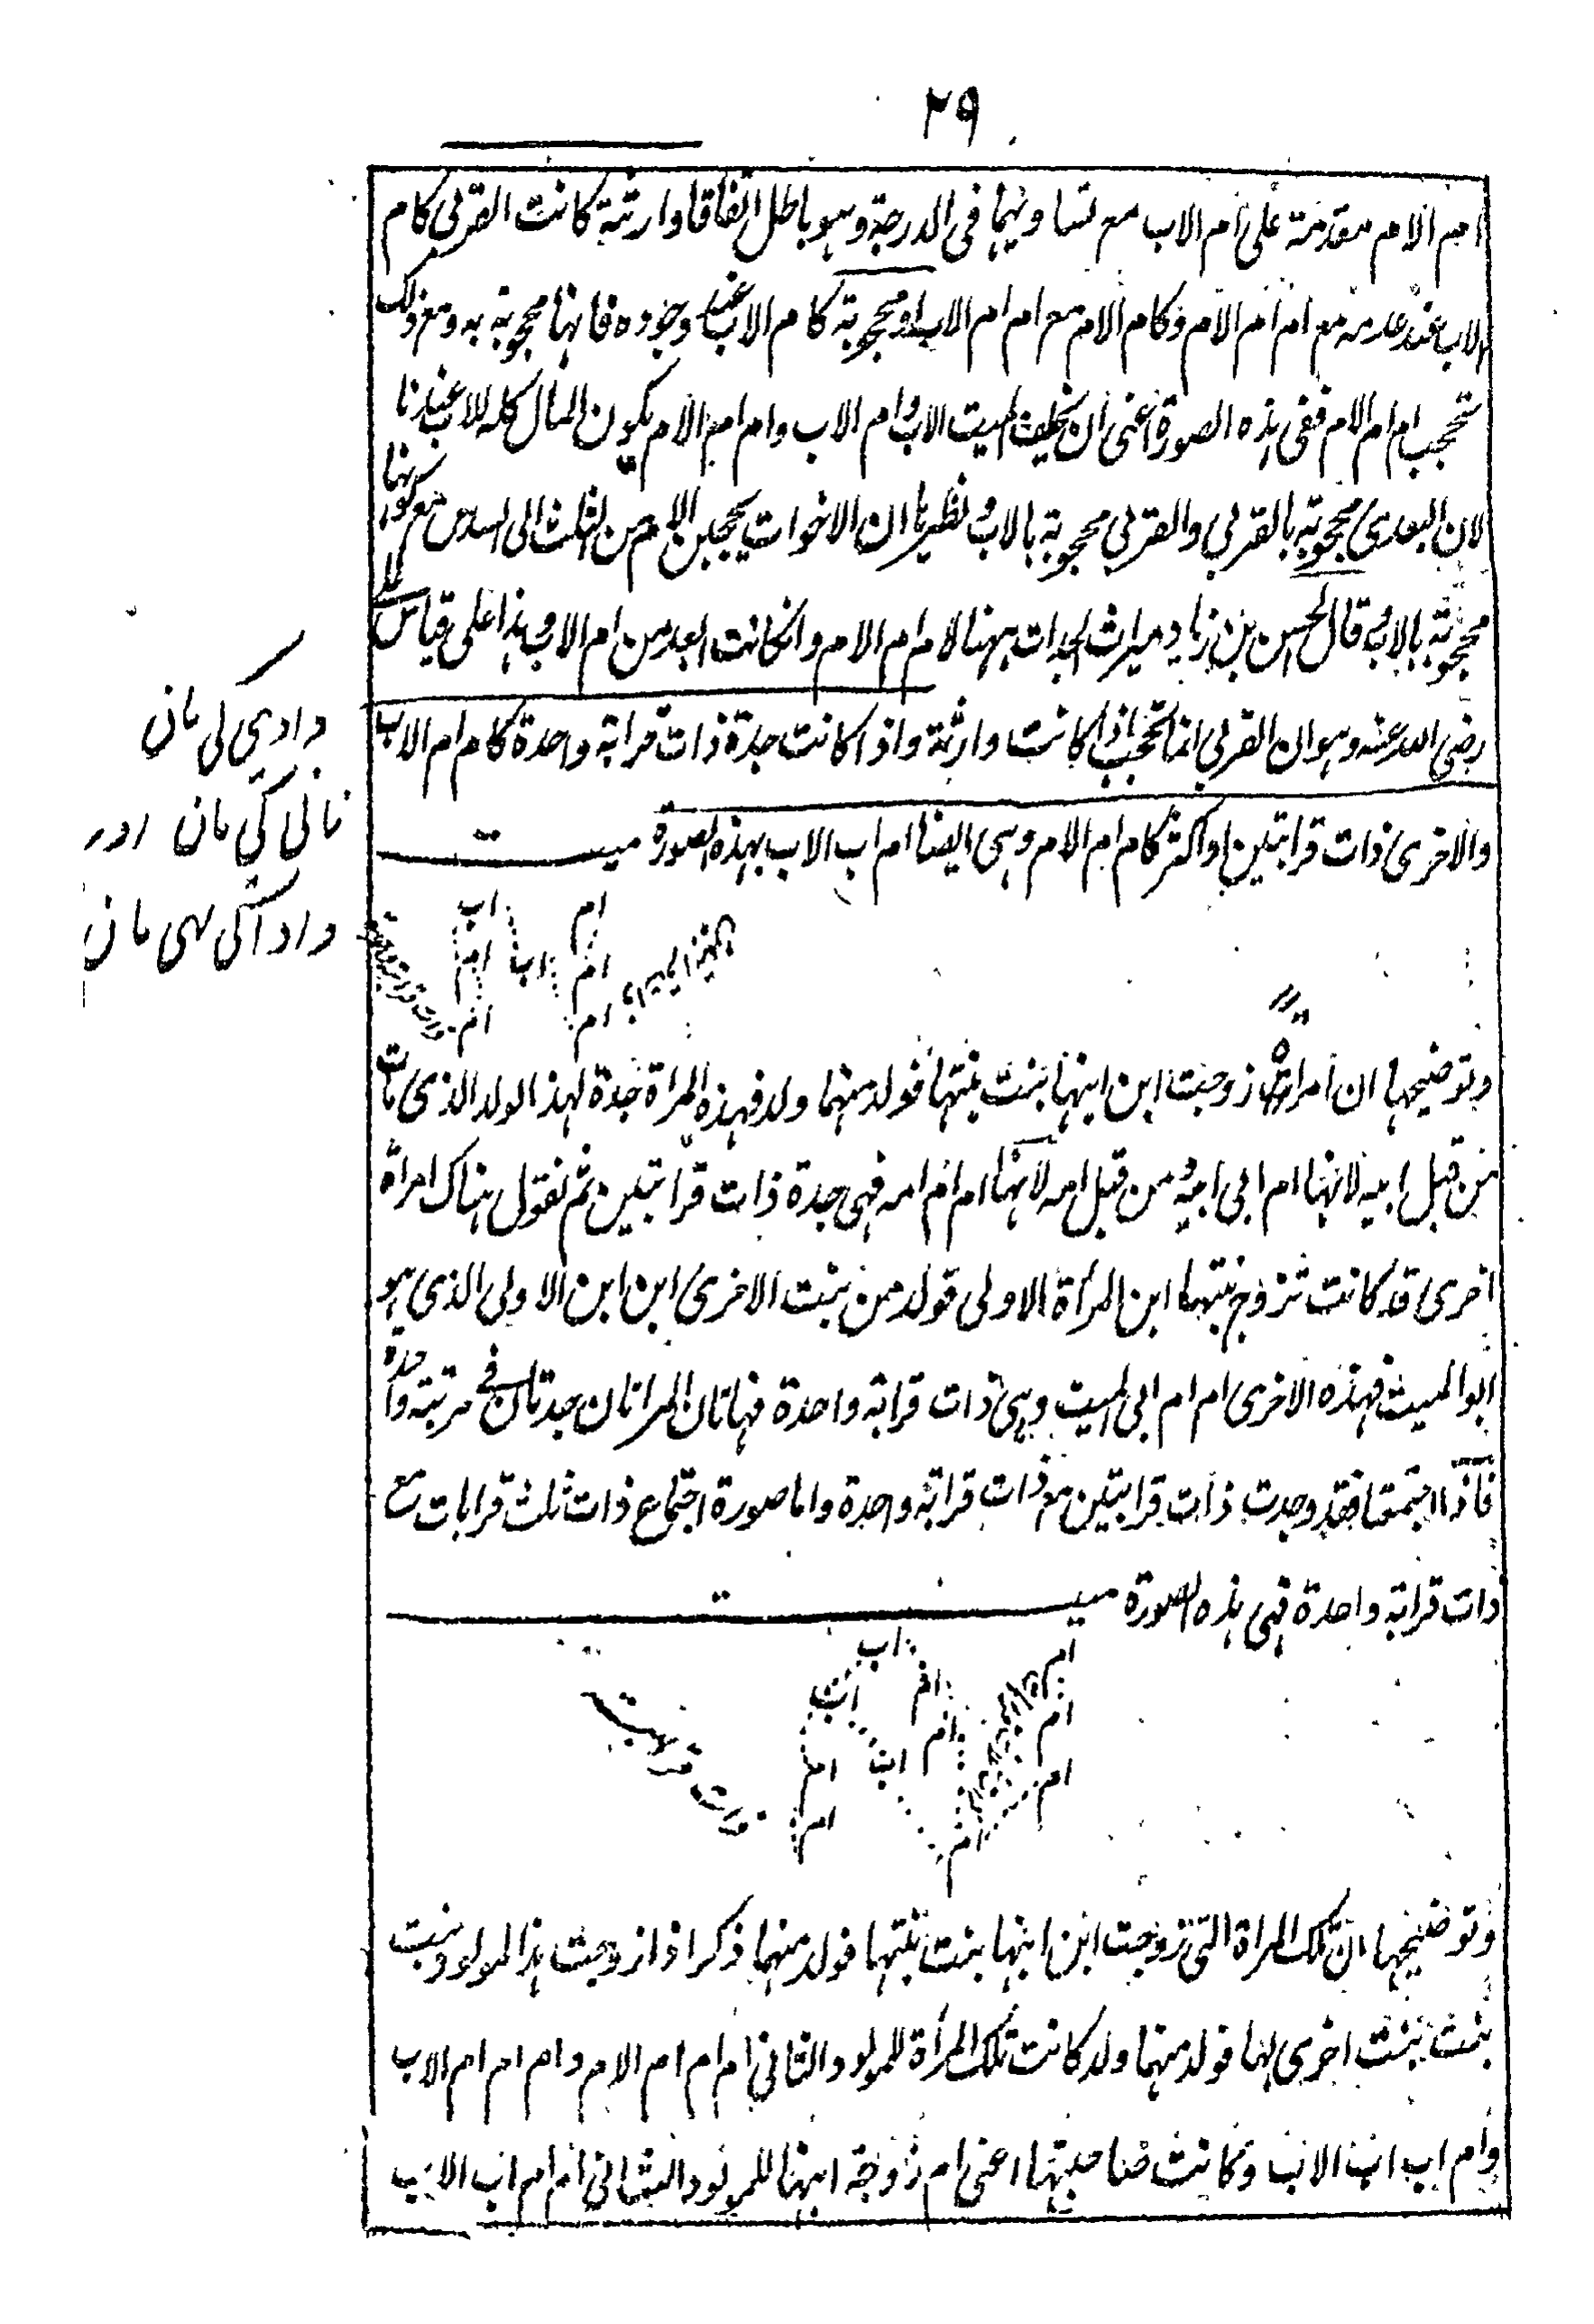 ٢٩
ام الام مقدمة على ام الاب مع تساويهما فى الدرجة وهو باطل اتفاقا وارثة كانت القربى كام
الاب عند عدمه مع ام ام الام وكام الام مع ام ام الاب او محجوبة كام الاب عند وجوده فانها محجوبة به ومع ذلك
تحجب ام ام الام ففى هذه الصورة اعنى ان يخلف الميت الاب وام الاب وام ام الام يكون المال كله للاب عندنا
لان البعدى محجوبة بالقربى والقربى محجوبة بالاب ونظيرها ان الاخوات يحجبن الام من الثلث الى السدس مع كونها
محجوبة بالاب وقال الحسن بن زياد ميراث الجدات ههنا لام ام الام وان كانت ابعد من ام الاب وهذا على قياس
رضى الله عنه وهو ان القربى انما تحجب اذا كانت وارثة واذا كانت جدة ذات قرابة واحدة كام ام الاب
والاخرى ذات قرابتين او اكثر كام ام الام وهى ايضا ام اب الاب بهذه الصورة ميـــت
ام اب
ام اب ام
ام ام
وتوضيحها ان امراة زوجت ابن ابنها بنت بنتها فولد منهما ولد فهذه المراة جدة لهذا الولد الذى مات
من قبل ابيه لانها ام ابى ابيه ومن قبل امه لانها ام ام امه فهى جدة ذات قرابتين ثم نقول هناك امراة
اخرى قد كانت تزوج بنتها ابن المراة الاولى فولد من بنت الاخرى ابن ابن الاولى الذى هو
ابو الميت فهذه الاخرى ام ام ابى الميت وهى ذات قرابة واحدة فهاتان المراتان جدتان فى مرتبة واحدة
فاذا اجتمعتا فقد وجدت ذات قرابتين مع ذات قرابة واحدة واما صورة اجتماع ذات ثلث قرابات مع
ذات قرابة واحدة فهى هذه الصورة ميـــت
ام اب
ام ام اب
ام ام اب ام
ام ام
وتوضيحها ان تلك المراة التى زوجت ابن ابنها بنت بنتها فولد منهما ذكر اذا زوجت هذا المولود بنت
بنت بنت اخرى لها فولد منهما ولد كانت تلك المراة للمولود الثانى ام ام ام الام وام ام ام الاب
وام اب اب الاب وكانت صاحبتها اعنى ام زوجة ابنها للمولود الثانى ام ام اب الاب
دادي كى مان
نانى كى مان اور
دادا كى بهى مان